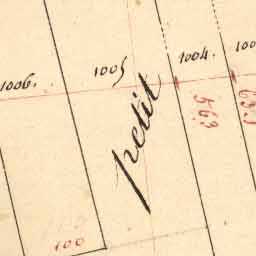 1006.
1005
1004.
petit
563
100